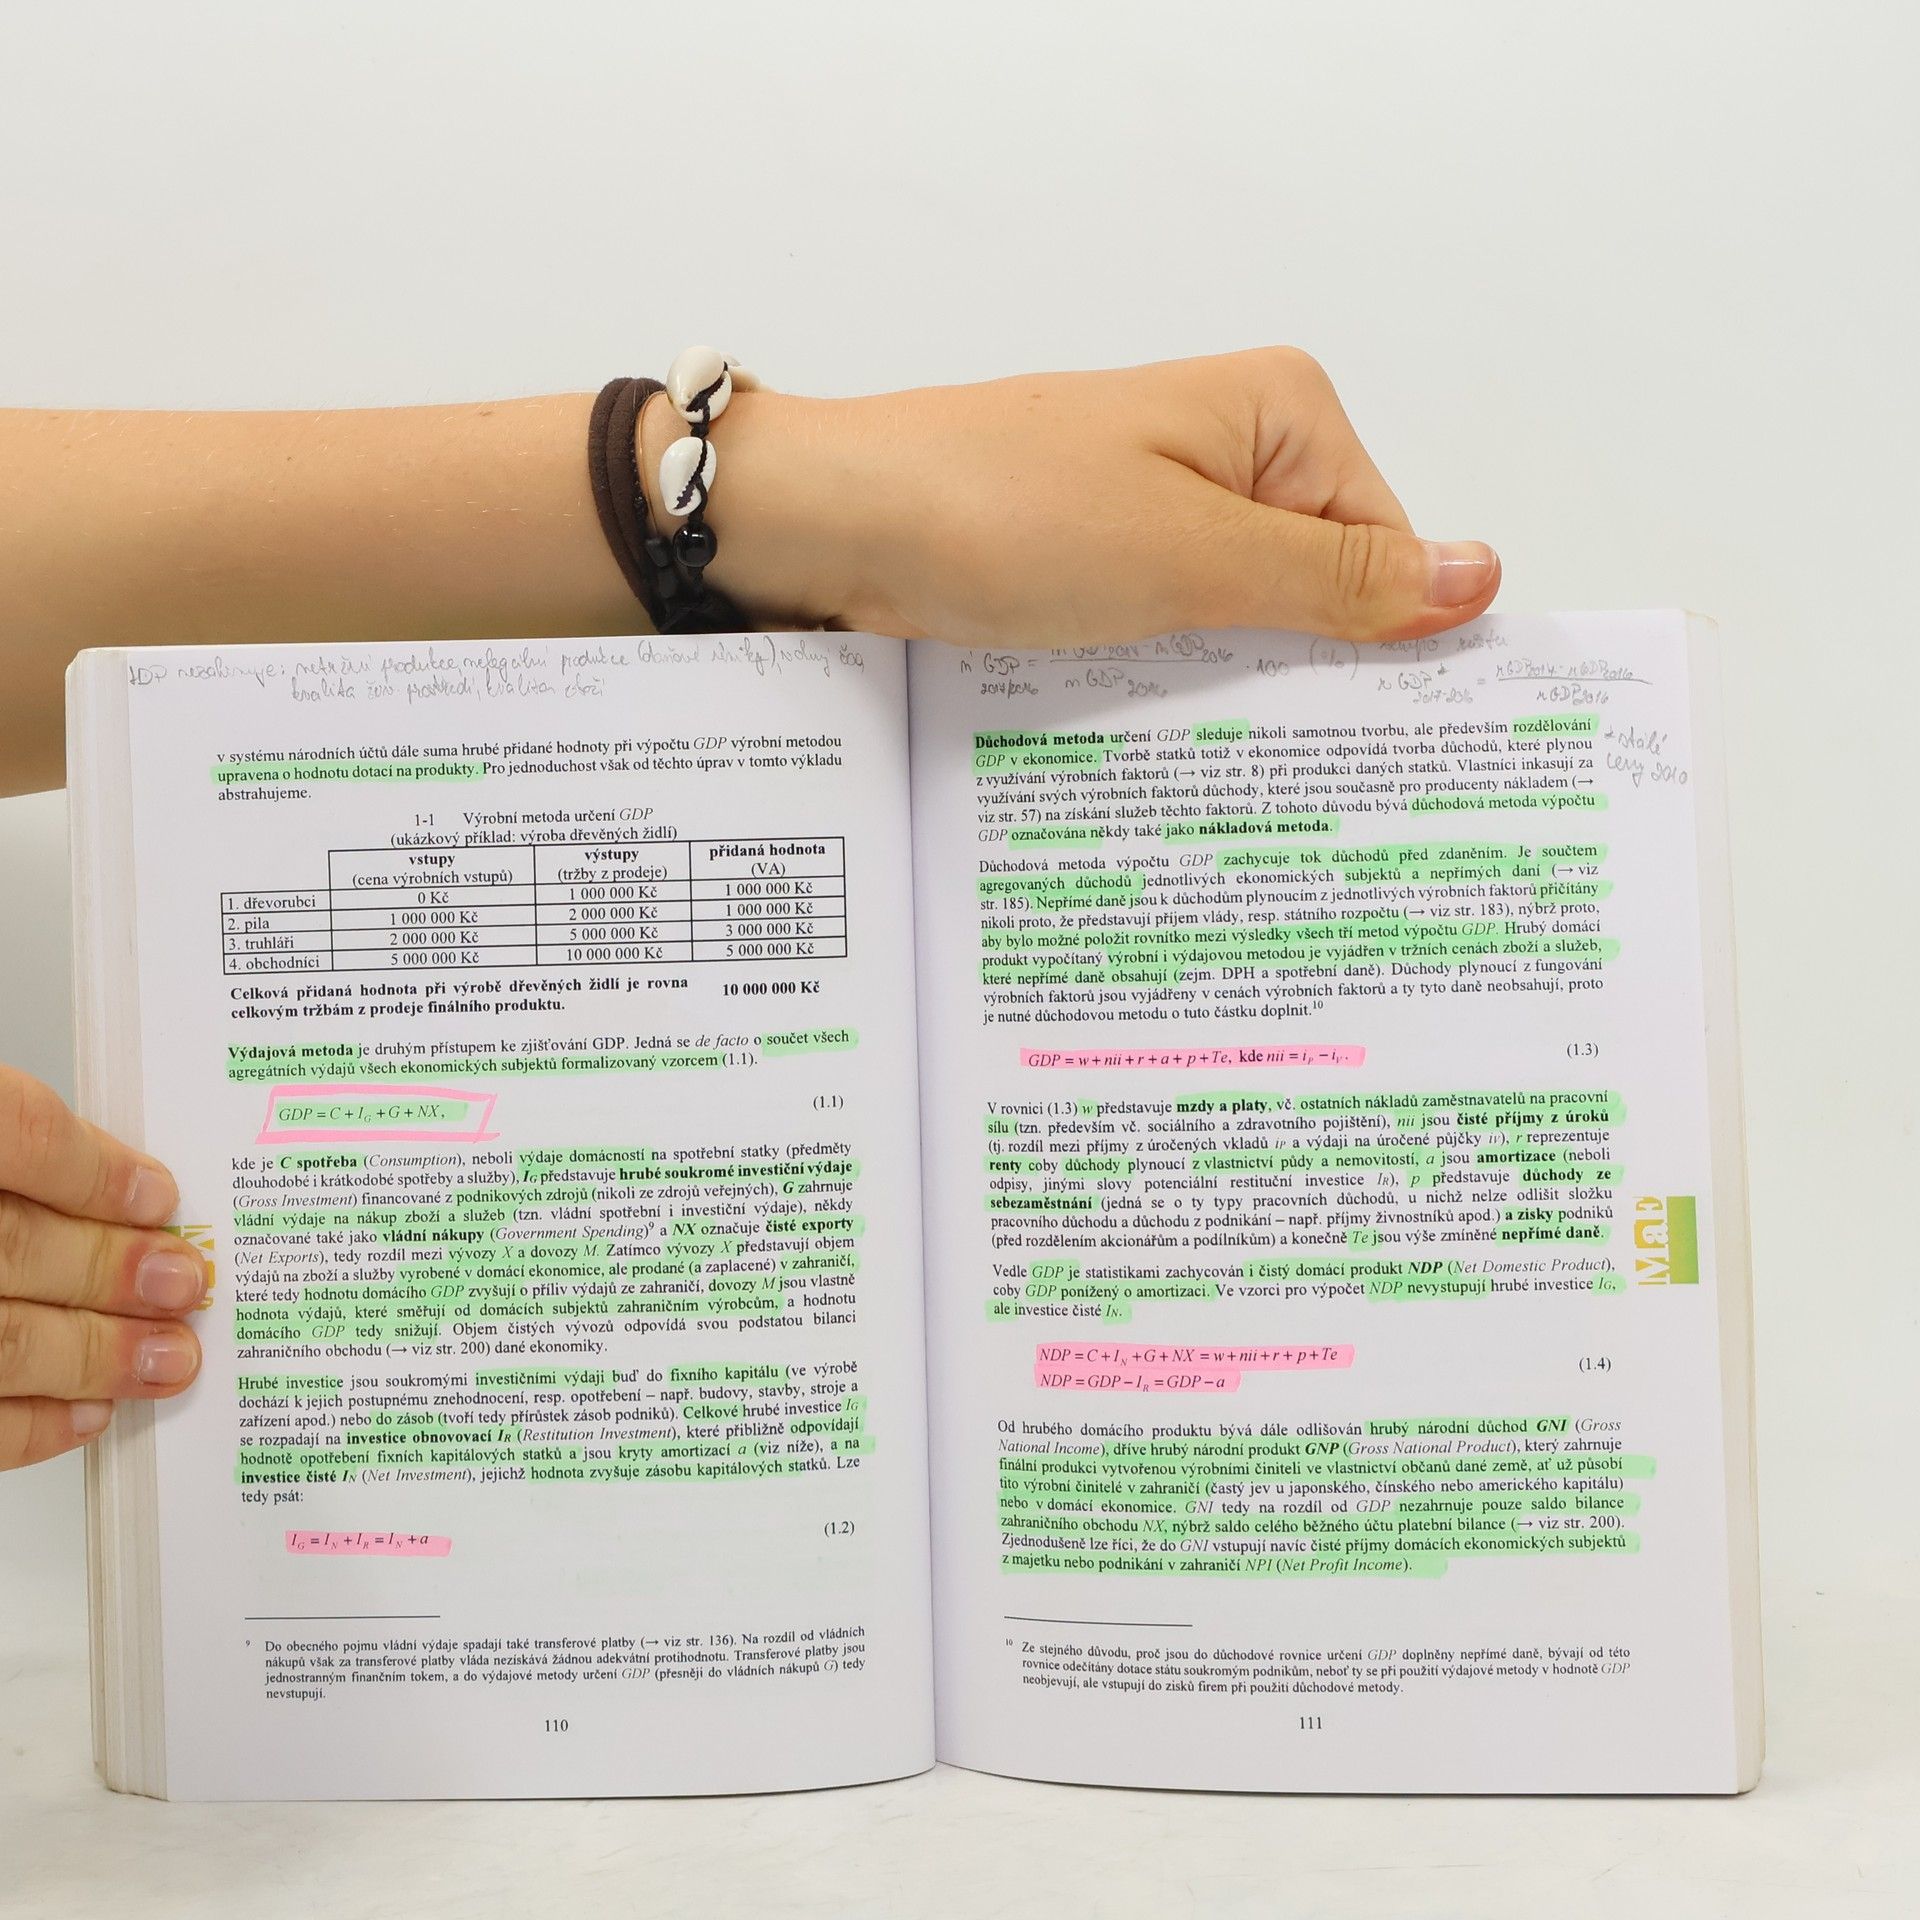 GDP nezahrnuje: netržní produkce, nelegální produkce (daňové úniky), volný čas,
kvalita živ. prostředí, kvalita zboží
v systému národních účtů dále suma hrubé přidané hodnoty při výpočtu GDP výrobní metodou
upravena o hodnotu dotací na produkty. Pro jednoduchost však od těchto úprav v tomto výkladu
abstrahujeme.
1-1 Výrobní metoda určení GDP
(ukázkový příklad: výroba dřevěných židlí)
vstupy (cena výrobních vstupů) výstupy (tržby z prodeje) přidaná hodnota (VA)
1. dřevorubci 0 Kč 1 000 000 Kč 1 000 000 Kč
2. pila 1 000 000 Kč 2 000 000 Kč 1 000 000 Kč
3. truhláři 2 000 000 Kč 5 000 000 Kč 3 000 000 Kč
4. obchodníci 5 000 000 Kč 10 000 000 Kč 5 000 000 Kč
Celková přidaná hodnota při výrobě dřevěných židlí je rovna 10 000 000 Kč
celkovým tržbám z prodeje finálního produktu.
Výdajová metoda je druhým přístupem ke zjišťování GDP. Jedná se de facto o součet všech
agregátních výdajů všech ekonomických subjektů formalizovaný vzorcem (1.1).
GDP = C + I_G + G + NX, (1.1)
kde je C spotřeba (Consumption), neboli výdaje domácností na spotřební statky (předměty
dlouhodobé i krátkodobé spotřeby a služby), I_G představuje hrubé soukromé investiční výdaje
(Gross Investment) financované z podnikových zdrojů (nikoli ze zdrojů veřejných), G zahrnuje
vládní výdaje na nákup zboží a služeb (tzn. vládní spotřební i investiční výdaje), někdy
označované také jako vládní nákupy (Government Spending)⁹ a NX označuje čisté exporty
(Net Exports), tedy rozdíl mezi vývozy X a dovozy M. Zatímco vývozy X představují objem
výdajů na zboží a služby vyrobené v domácí ekonomice, ale prodané (a zaplacené) v zahraničí,
které tedy hodnotu domácího GDP zvyšují o příliv výdajů ze zahraničí, dovozy M jsou vlastně
hodnota výdajů, které směřují od domácích subjektů zahraničním výrobcům, a hodnotu
domácího GDP tedy snižují. Objem čistých vývozů odpovídá svou podstatou bilanci
zahraničního obchodu (→ viz str. 200) dané ekonomiky.
Hrubé investice jsou soukromými investičními výdaji buď do fixního kapitálu (ve výrobě
dochází k jejich postupnému znehodnocení, resp. opotřebení – např. budovy, stavby, stroje a
zařízení apod.) nebo do zásob (tvoří tedy přírůstek zásob podniků). Celkové hrubé investice I_G
se rozpadají na investice obnovovací I_R (Restitution Investment), které přibližně odpovídají
hodnotě opotřebení fixních kapitálových statků a jsou kryty amortizací a (viz níže), a na
investice čisté I_N (Net Investment), jejichž hodnota zvyšuje zásobu kapitálových statků. Lze
tedy psát:
I_G = I_N + I_R = I_N + a (1.2)
⁹ Do obecného pojmu vládní výdaje spadají také transferové platby (→ viz str. 136). Na rozdíl od vládních
nákupů však za transferové platby vláda nezískává žádnou adekvátní protihodnotu. Transferové platby jsou
jednostranným finančním tokem, a do výdajové metody určení GDP (přesněji do vládních nákupů G) tedy
nevstupují.
110
GDP 2017/2016 = nGDP 2016 · 100 (%)
r GDP* 2017-2016 = rGDP2017 - rGDP2016 / rGDP2016
* stálé
ceny 2010
Důchodová metoda určení GDP sleduje nikoli samotnou tvorbu, ale především rozdělování
GDP v ekonomice. Tvorbě statků totiž v ekonomice odpovídá tvorba důchodů, které plynou
z využívání výrobních faktorů (→ viz str. 8) při produkci daných statků. Vlastníci inkasují za
využívání svých výrobních faktorů důchody, které jsou současně pro producenty nákladem (→
viz str. 57) na získání služeb těchto faktorů. Z tohoto důvodu bývá důchodová metoda výpočtu
GDP označována někdy také jako nákladová metoda.
Důchodová metoda výpočtu GDP zachycuje tok důchodů před zdaněním. Je součtem
agregovaných důchodů jednotlivých ekonomických subjektů a nepřímých daní (→ viz
str. 185). Nepřímé daně jsou k důchodům plynoucím z jednotlivých výrobních faktorů přičítány
nikoli proto, že představují příjem vlády, resp. státního rozpočtu (→ viz str. 183), nýbrž proto,
aby bylo možné položit rovnítko mezi výsledky všech tří metod výpočtu GDP. Hrubý domácí
produkt vypočítaný výrobní i výdajovou metodou je vyjádřen v tržních cenách zboží a služeb,
které nepřímé daně obsahují (zejm. DPH a spotřební daně). Důchody plynoucí z fungování
výrobních faktorů jsou vyjádřeny v cenách výrobních faktorů a ty tyto daně neobsahují, proto
je nutné důchodovou metodu o tuto částku doplnit.¹⁰
GDP = w + nii + r + a + p + Te, kde nii = i_P − i_V. (1.3)
V rovnici (1.3) w představuje mzdy a platy, vč. ostatních nákladů zaměstnavatelů na pracovní
sílu (tzn. především vč. sociálního a zdravotního pojištění), nii jsou čisté příjmy z úroků
(tj. rozdíl mezi příjmy z úročených vkladů i_P a výdaji na úročené půjčky i_V), r reprezentuje
renty coby důchody plynoucí z vlastnictví půdy a nemovitostí, a jsou amortizace (neboli
odpisy, jinými slovy potenciální restituční investice I_R), p představuje důchody ze
sebezaměstnání (jedná se o ty typy pracovních důchodů, u nichž nelze odlišit složku
pracovního důchodu a důchodu z podnikání – např. příjmy živnostníků apod.) a zisky podniků
(před rozdělením akcionářům a podílníkům) a konečně Te jsou výše zmíněné nepřímé daně.
Vedle GDP je statistikami zachycován i čistý domácí produkt NDP (Net Domestic Product),
coby GDP ponížený o amortizaci. Ve vzorci pro výpočet NDP nevystupují hrubé investice I_G,
ale investice čisté I_N.
NDP = C + I_N + G + NX = w + nii + r + p + Te
NDP = GDP − I_R = GDP − a (1.4)
Od hrubého domácího produktu bývá dále odlišován hrubý národní důchod GNI (Gross
National Income), dříve hrubý národní produkt GNP (Gross National Product), který zahrnuje
finální produkci vytvořenou výrobními činiteli ve vlastnictví občanů dané země, ať už působí
tito výrobní činitelé v zahraničí (častý jev u japonského, čínského nebo amerického kapitálu)
nebo v domácí ekonomice. GNI tedy na rozdíl od GDP nezahrnuje pouze saldo bilance
zahraničního obchodu NX, nýbrž saldo celého běžného účtu platební bilance (→ viz str. 200).
Zjednodušeně lze říci, že do GNI vstupují navíc čisté příjmy domácích ekonomických subjektů
z majetku nebo podnikání v zahraničí NPI (Net Profit Income).
¹⁰ Ze stejného důvodu, proč jsou do důchodové rovnice určení GDP doplněny nepřímé daně, bývají od této
rovnice odečítány dotace státu soukromým podnikům, neboť ty se při použití výdajové metody v hodnotě GDP
neobjevují, ale vstupují do zisků firem při použití důchodové metody.
111
MaE